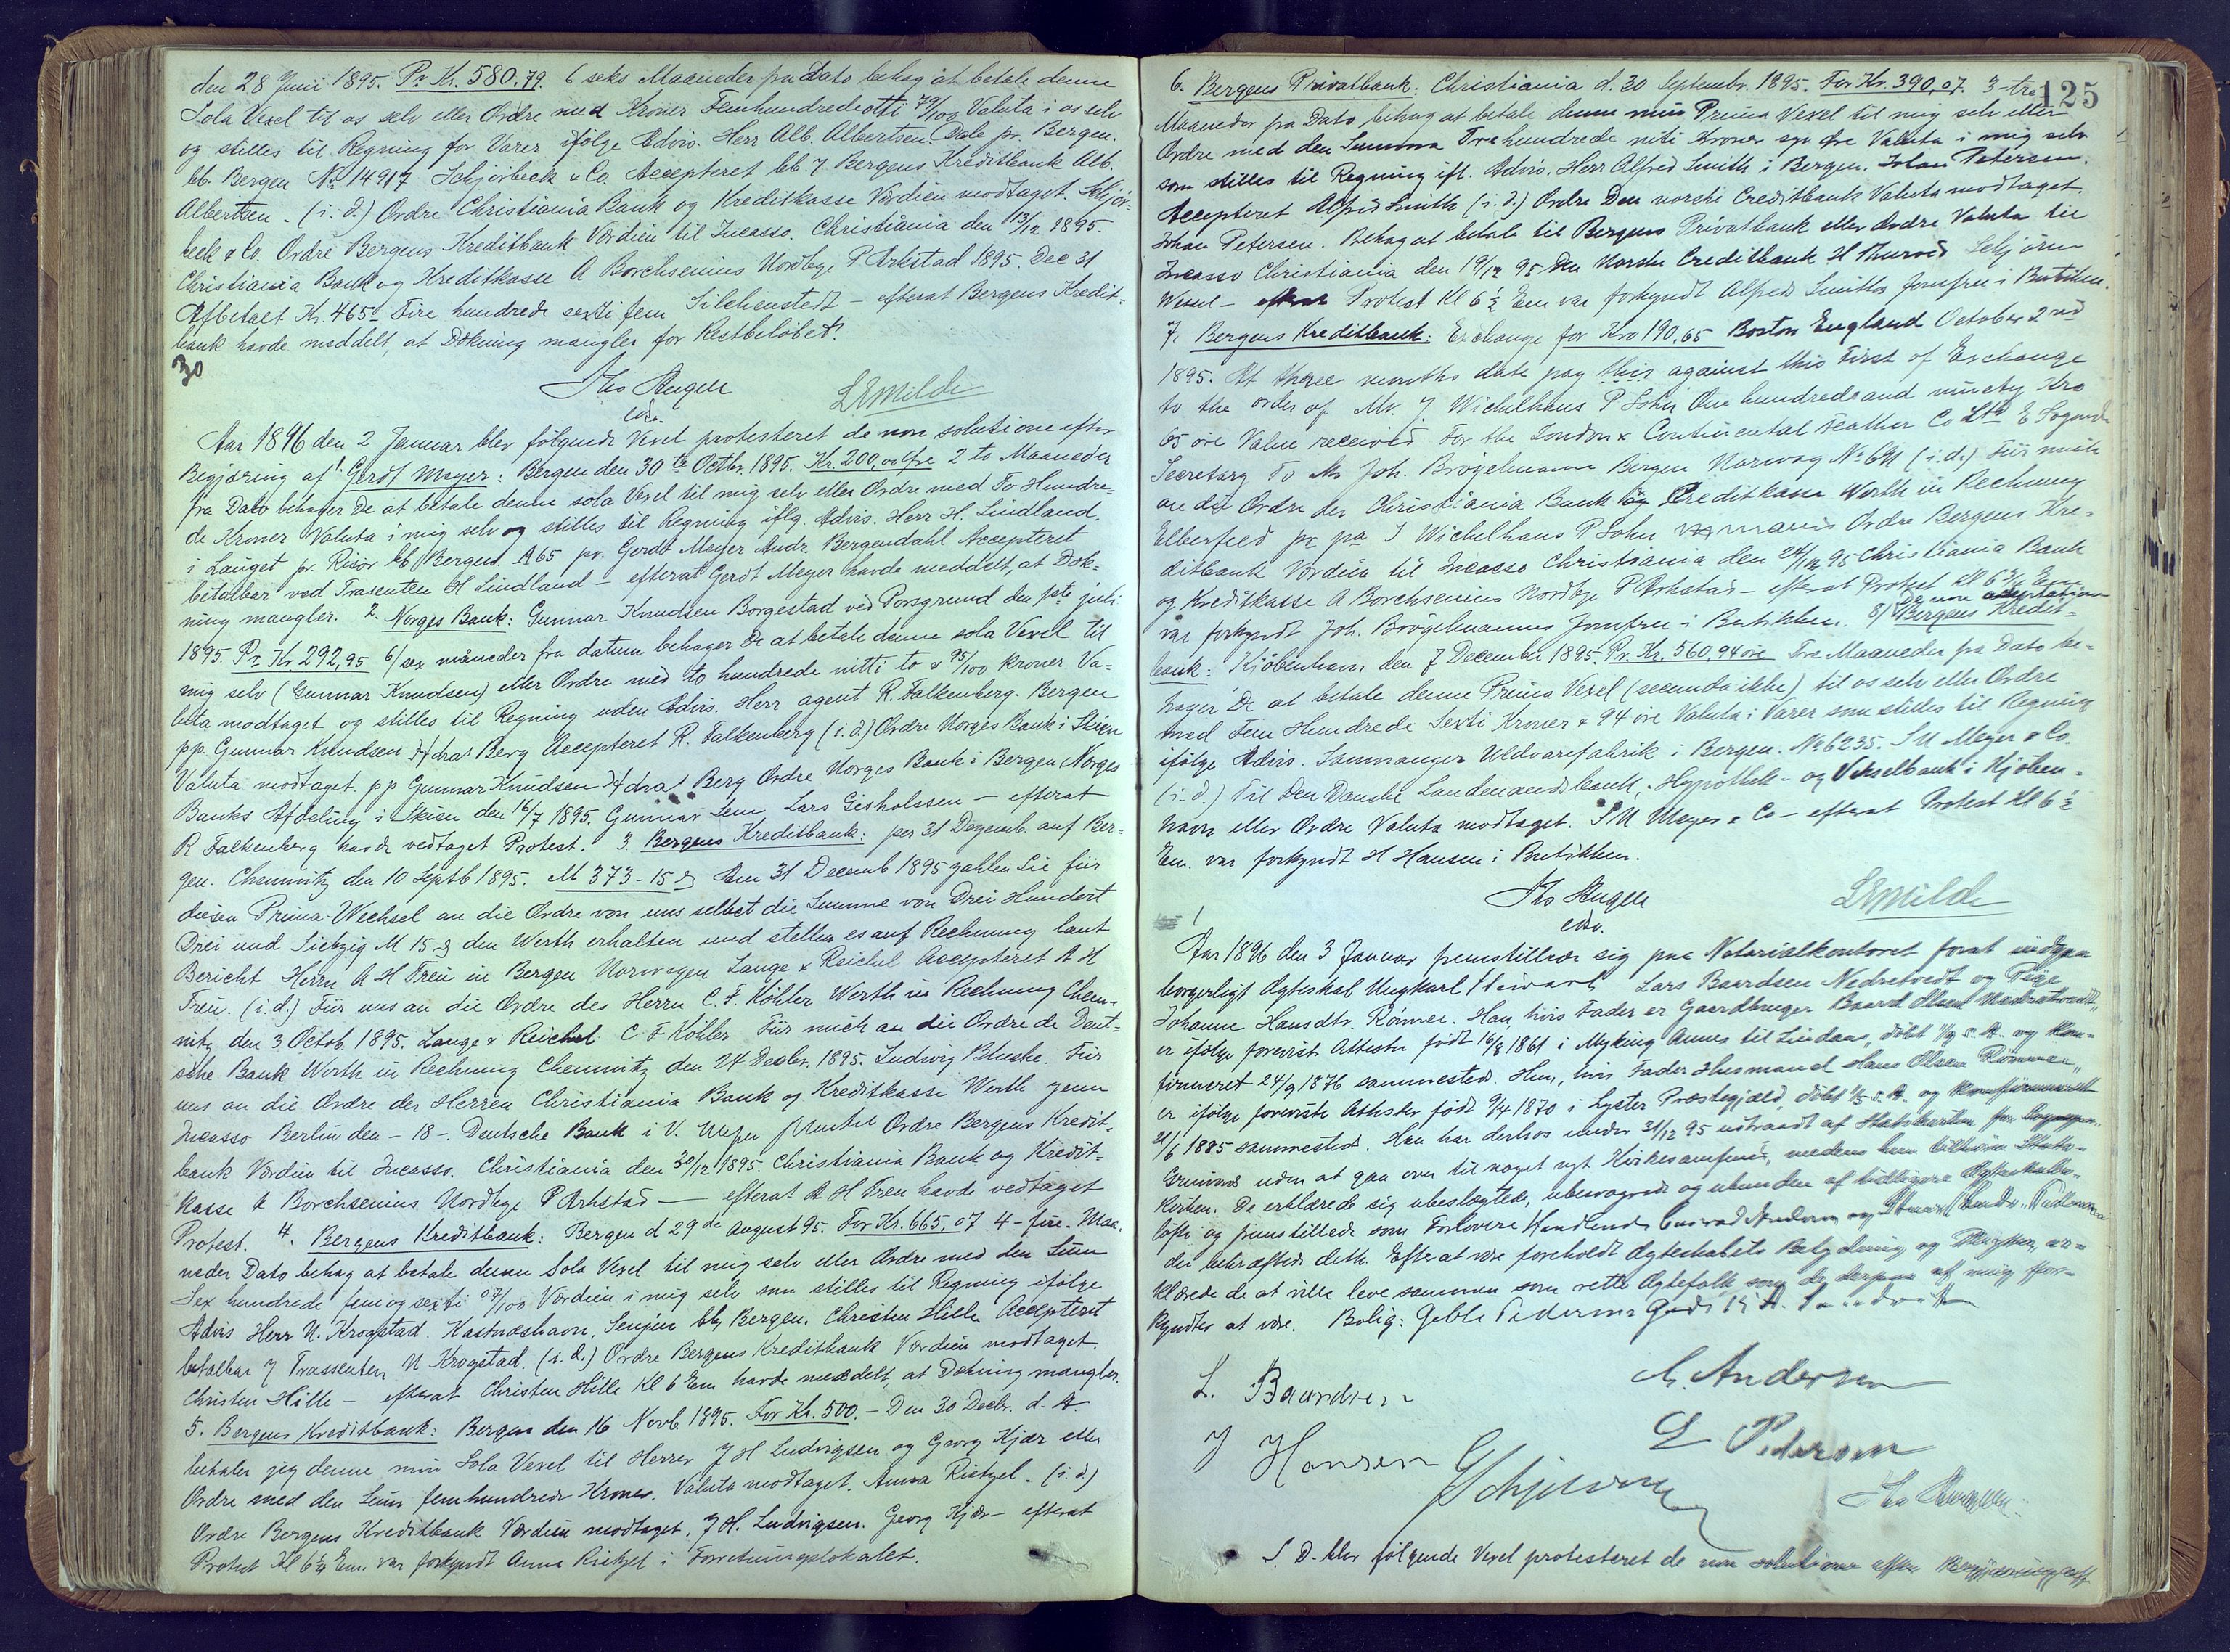 den 28 Juni 1895. Pr. Kr. 580.79. 6 seks Maaneder fra Dato behag at betale denne
Sola Vexel til os selv eller Ordre med Kroner Femhundredeotti 79/100 Valuta i os selv
og stilles til Regning for Varer ifölge Advis. Herr Alb. Albertsen. Dale pr. Bergen.
bb. Bergen No 14917 Schjorbeck & Co. Accepteret bb. 7 Bergens Kreditbank Alb.
Albertsen. (i. d.) Ordre Christiania Bank og Kreditkasse Værdien modtaget. Schjör-
beck & Co. Ordre Bergens Kreditbank Værdien til Incasso. Christiania den 13/12 1895.
Christiania Bank og Kreditkasse A Borchsenius Nordbye P Arkstad 1895. Dec 31
Afbetalt Kr. 465- Fire hundrede sexti fem Silchenstedt - efterat Bergens Kredit-
bank havde meddelt, at Dækning mangler for Restbeløbet.
30
L E Milde
cst.
Aar 1896 den 2 Januar blev følgende Vexel protesteret de non solutione efter
Begjæring af 1. Gerdt Meyer: Bergen den 30te Octbr. 1895. Kr. 200,00 Øre 2 to Maaneder
fra Dato behager De at betale denne sola Vexel til mig selv eller Ordre med To Hundre-
de Kroner Valuta i mig selv og stilles til Regning iflg. Advis. Herr H. Lindland.
i Lauget pr. Risør bb Bergen. A 65 pr. Gerdt Meyer Andr. Bergendahl Accepteret
betalbar ved Trasenten H Lindland - efterat Gerdt Meyer havde meddelt, at Dæk-
ning mangler. 2. Norges Bank: Gunnar Knudsen Borgestad ved Porsgrund den 1ste juli
1895. Pr. Kr 292,95 6/sex måneder fra datum behager De at betale denne sola Vexel til
mig selv (Gunnar Knudsen) eller Ordre med to hundrede nitti to & 95/100 kroner Va-
luta modtaget og stilles til Regning uden Advis. Herr agent R. Falkenberg. Bergen
pp. Gunnar Knudsen Hydra Berg Accepteret R. Falkenberg (i. d.) Ordre Norges Bank i Skien
Valuta modtaget. pp Gunnar Knudsen Hydra Berg Ordre Norges Bank i Bergen Norges
Banks Afdeling i Skien den 16/7 1895. Gunnar Lem Lars Gisholssen - efterat
R Falkenberg havde vedtaget Protest. 3. Bergens Kreditbank: per 31 Dezemb. auf Ber-
gen. Chemnitz den 10 Septb 1895. M 373-15 Am 31 Decemb 1895 zahlen Sie für
diesen Prima-Wechsel an die Ordre von uns selbst die Summe von Drei Hundert
Drei und Siebzig M 15 den Werth erhalten und stellen es auf Rechnung laut
Bericht Herrn A H Freu in Bergen Norwegen Lange & Reichel Accepteret A H
Freu. (i. d.) Für uns an die Ordre des Herrn C. F. Köhler Werth in Rechnung Chem-
nitz den 3 Octob. 1895. Lange & Reichel C F Köhler Für mich an die Ordre de Deut-
sche Bank Werth in Rechnung Chemnitz den 24 Decbr. 1895. Ludwig Bluske. Für
uns an die Ordre der Herren Christiania Bank og Kreditkasse Werth zum
Incasso Berlin den - 18 -. Deutsche Bank i V. Ordre Bergens Kredit-
bank Værdien til Incasso. Christiania den 30/12 1895. Christiania Bank og Kredit-
kasse A Borchsenius Nordbye P Arkstad - efterat A H Freu havde vedtaget
Protest. 4. Bergens Kreditbank: Bergen d 29de August 95. For Kr. 665,07 4 - fire - Maa-
neder Dato behag at betale denne Sola Vexel til mig selv eller Ordre med den Sum
Sex hundrede femogsexti 07/100 Værdien i mig selv som stilles til Regning ifölge
Advis Herr N. Krogstad. Kastnæshavn, Senjen bb Bergen. Christen Hille Accepteret
betalbar 7 Trassenten N Krogstad. (i. d.) Ordre Bergens Kreditbank Værdien modtaget.
Christen Hille - efterat Christen Hille Kl 6 Em havde meddelt, at Dækning mangler.
5. Bergens Kreditbank: Bergen den 16 Novb. 1895. For Kr. 500. - Den 30 Decbr. d. A.
betaler jeg denne min Sola Vexel til Herrer J H Ludvigsen og Georg Kjær eller
Ordre med den Sum femhundrede Kroner. Valuta modtaget. Anna Rietzel. (i. d.)
Ordre Bergens Kreditbank Værdien modtaget. J H. Ludvigsen. Georg Kjær - efterat
Protest Kl 6 1/4 Em. var forkyndt Anna Rietzel i Forretningslokalet.
125
6. Bergens Privatbank: Christiania d. 30 Septembr. 1895. For Kr. 390,07. 3 - tre
Maaneder fra Dato behag at betale denne min Prima Vexel til mig selv eller
Ordre med den Summa Trehundrede niti Kroner syv øre Valuta i mig selv
som stilles til Regning ifl. Advis. Herr Alfred Smith i Bergen. Johan Petersen.
Accepteret Alfred Smith (i. d.) Ordre Den norske Creditbank Valuta modtaget.
Johan Petersen. Behag at betale til Bergens Privatbank eller Ordre Valuta til
Incasso Christiania den 19/12 95 Den Norske Creditbank H Schjörn
Wessel - efterat Protest Kl 6 1/2 Em var forkyndt Alfred Smiths Jomfru i Butiken.
7. Bergens Kreditbank: Exchange for Kro 190.65 Boston England October 2nd
1895. At three months date pay this against this First of Exchange
to the order of Mr. J. Wichelhaus P Sohn One hundred and ninety Kro
65 öre Value received For the London & Continental Feather Co Ltd E
Secretary To Mr Joh. Brögelmann Bergen Norway No 691 (i. d.) Für mich
an die Ordre der Christiania Bank og Creditkasse Werth in Rechnung
Elberfeld pr pa J Wichelhaus P Sohn Ordre Bergens Kre-
ditbank Værdien til Incasso Christiania den 24/12 95 Christiania Bank
og Kreditkasse A Borchsenius Nordbye P Arkstad - efterat Protest Kl 6 3/4 Em
var forkyndt Joh. Brögelmanns Jomfru i Butikken. 8) de non acceptation Bergens Kredit-
bank: Kiöbenhavn den 7 December 1895. Pr. Kr. 560.94 øre Tre Maaneder fra Dato be-
hager De at betale denne Prima Vexel (secunda ikke) til os selv eller Ordre
med Fem Hundrede Sexti Kroner & 94 öre Valuta i Varer som stilles til Regning
ifölge Advis. Samnanger Uldvarefabrik i Bergen. No 6235. S M Meyer & Co.
(i. d.) Til Den Danske Landmandsbank, Hypothek- og Vekselbank i Kjöben-
havn eller Ordre Valuta modtaget. S M Meyer & Co - efterat Protest Kl 6 1/2
Em. var forkyndt H Hansen i Butikken.
L E Milde
cst.
Aar 1896 den 3 Januar fremstillede sig paa Notarialkontoret forat indgaa
borgerligt Ægteskab Ungkarl Lars Baardsen Nedretvedt og Pige
Johanne Hansdtr. Rømer. Han, hvis Fader er Gaardbruger Baard Olsen Nedretvedt,
er ifölge forevist Attester født 16/8 1861 i Myking Annex til Lindaas, döbt 1/9 s. A. og Kon-
firmeret 24/9 1876 sammesteds. Hun, hvis Fader Husmand Hans Olsen
er ifölge foreviste Attester født 9/4 1870 i Lyster Præstegjæld, döbt 1/5 s. A. og Konfirmeret
21/6 1885 sammesteds. Han har derhos under 31/12 95 udtraadt af Statskirken
uden at gaa over til noget nyt Kirkesamfund, medens hun tilhører Stats-
kirken. De erklærede sig ubeslægtede, ubesvogrede og ubundne af tidligere Ægteskabs-
løfte og fremstillede som Forlovere Handlende Andersen og
der bekræftede dette. Efter at være foreholdt Ægteskabets Betydning og Pligter, er-
klærede de at ville leve sammen som rette Ægtefolk som de derpaa af mig for-
kyndtes at være. Bolig: Geble Pedersens Gade 15 A.
L. Baardsen
J Hansen
A. Andersen
L Pedersen
S. D. blev følgende Vexel protesteret de non solutione efter Begjæring af